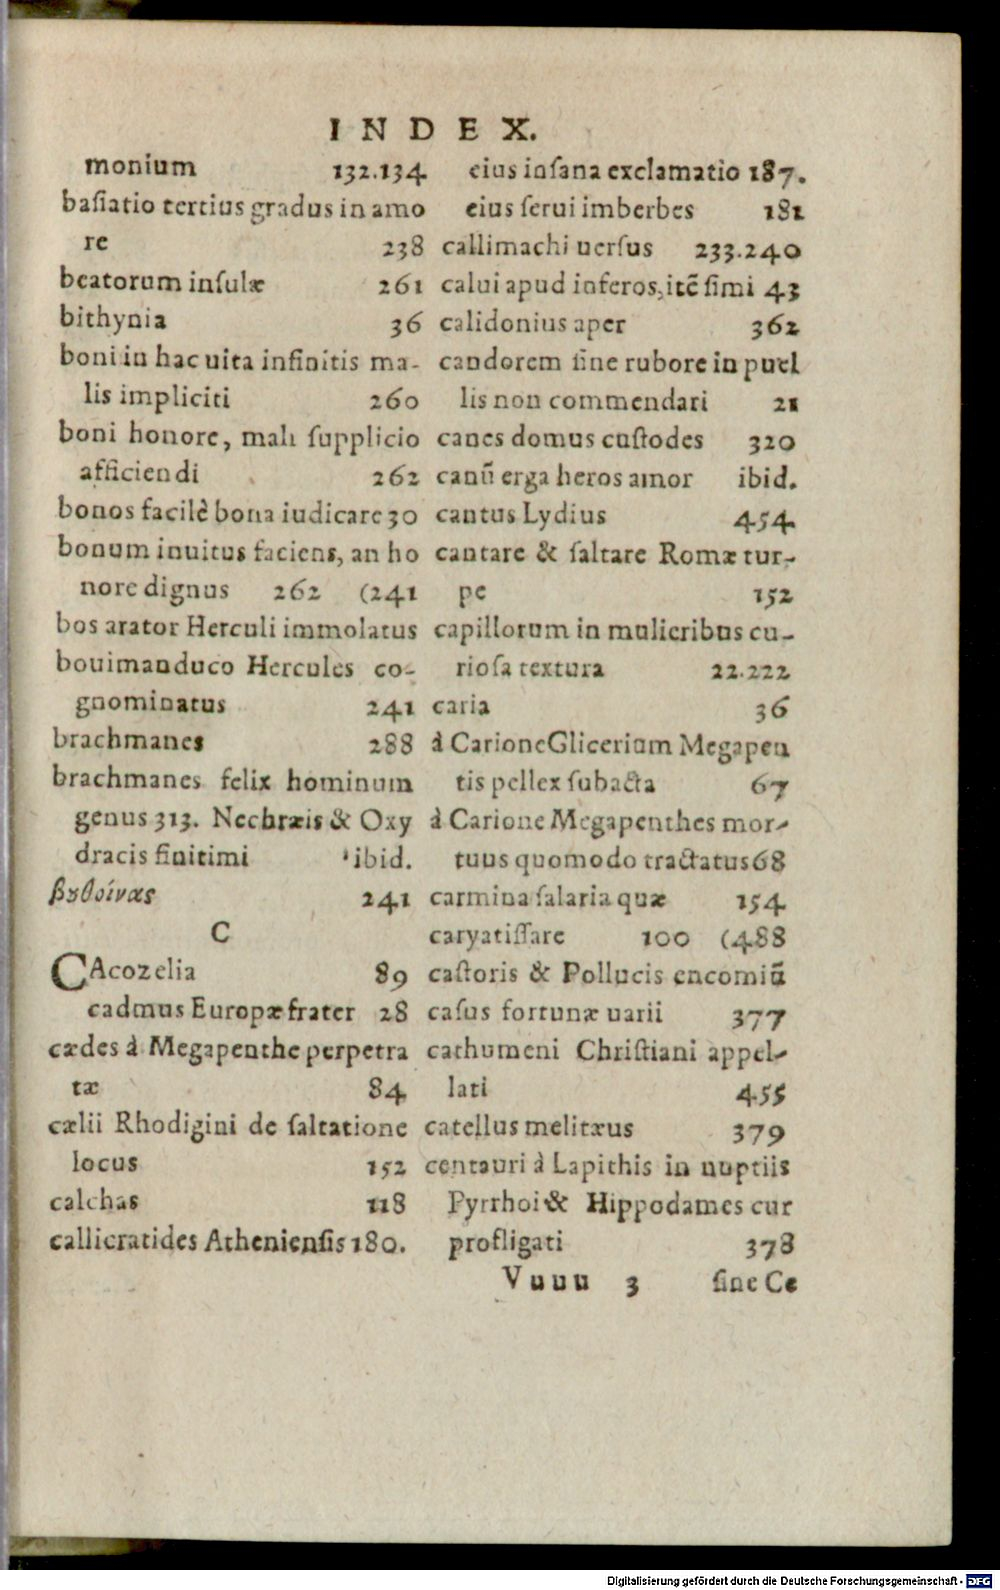 INDEX.
monium 132.134
basiatio tertius gradus in amo
re 238
beatorum insulæ 261
bithynia 36
boni in hac uita infinitis ma-
lis impliciti 260
boni honore, mali supplicio
afficiendi 262
bonos facilè bona iudicare 30
bonum inuitus faciens, an ho
nore dignus 262 (241
bos arator Herculi immolatus
bouimanduco Hercules co-
gnominatus 241
brachmanes 288
brachmanes felix hominum
genus 313. Nechræis & Oxy
dracis finitimi ibid.
βυθοίνας 241
C
CAcozelia 89
cadmus Europæ frater 28
cædes à Megapenthe perpetra
tæ 84
cælii Rhodigini de saltatione
locus 152
calchas 118
callicratides Atheniensis 180.
eius insana exclamatio 187.
eius serui imberbes 181
callimachi uersus 233.240
calui apud inferos, itē simi 43
calidonius aper 362
candorem sine rubore in puel
lis non commendari 21
canes domus custodes 320
canū erga heros amor ibid.
cantus Lydius 454
cantare & saltare Romæ tur-
pe 152
capillorum in mulieribus cu-
riosa textura 22.222
caria 36
à Carione Glicerium Megapen
tis pellex subacta 67
à Carione Megapenthes mor-
tuus quomodo tractatus 68
carmina salaria quæ 154
caryatissare 100 (488
castoris & Pollucis encomiū
casus fortunæ uarii 377
cathumeni Christiani appel-
lati 455
catellus melitæus 379
centauri à Lapithis in nuptiis
Pyrrhoi & Hippodames cur
profligati 378
Vuuu 3 sine Ce
Digitalisierung gefördert durch die Deutsche Forschungsgemeinschaft - DFG